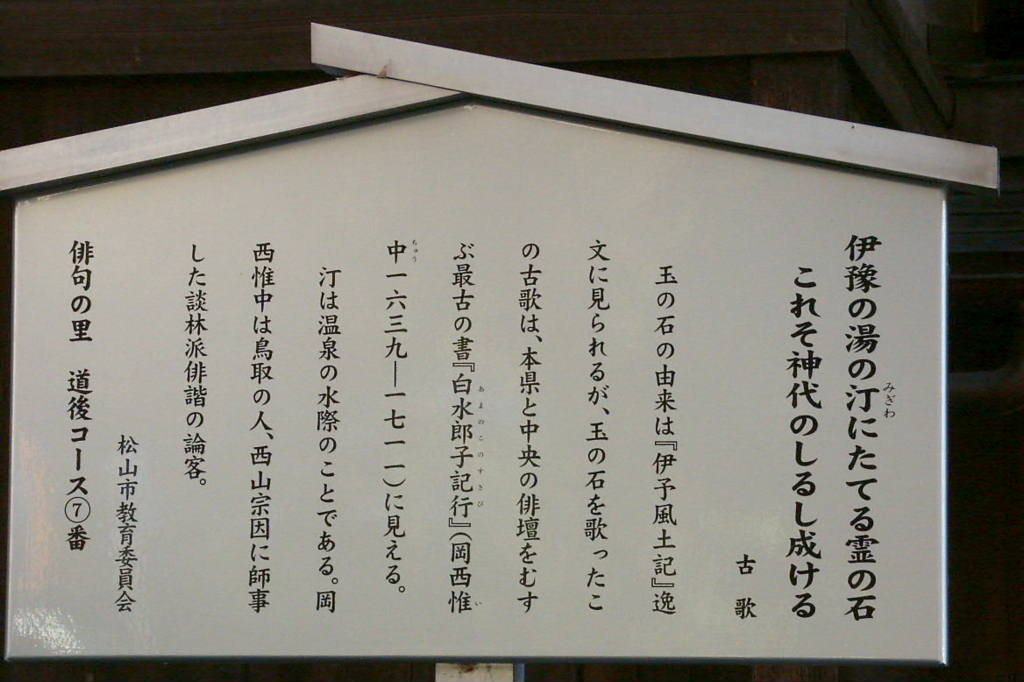 伊豫の湯の汀にたてる霊の石
みぎわ
これぞ神代のしるし成ける
古歌
玉の石の由来は『伊予風土記』逸
文に見られるが、玉の石を歌ったこ
の古歌は、本県と中央の俳壇をむす
ぶ最古の書『白水郎子記行』（岡西惟
あまのこのすさび
い
中一六三九―一七一一）に見える。
ちゅう
汀は温泉の水際のことである。岡
西惟中は鳥取の人、西山宗因に師事
した談林派俳諧の論客。
松山市教育委員会
俳句の里 道後コース⑦番